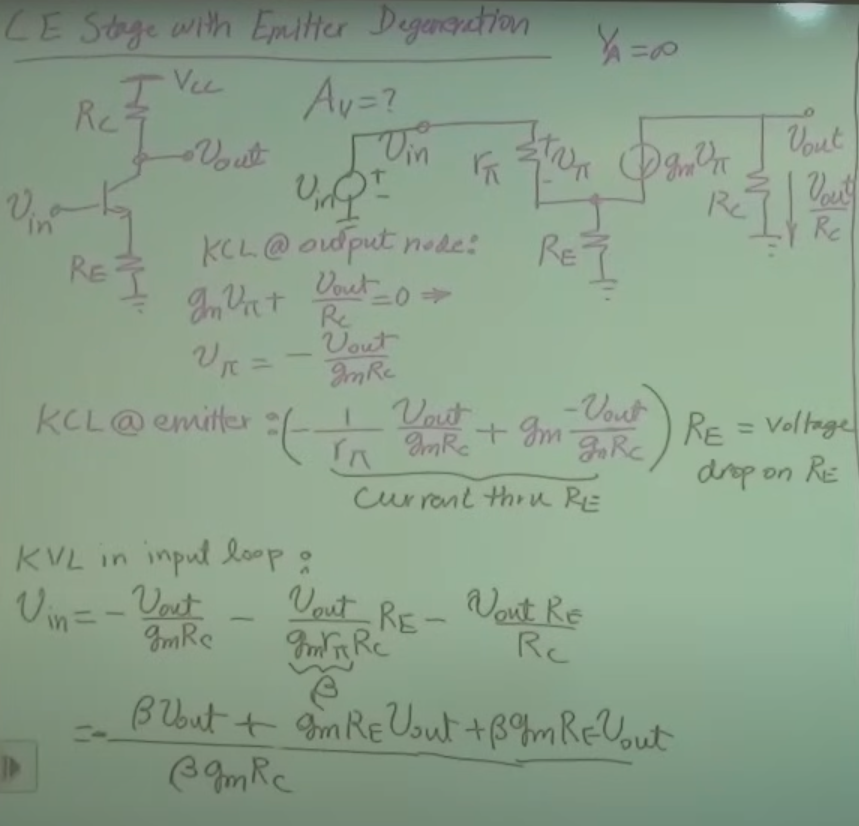 CE Stage with Emitter Degeneration
VA = ∞
Vcc
Rc
Av = ?
Vout
Vin
RE
Vin
Vin
+
-
rπ
+
Vπ
-
gmVπ
Rc
Vout
Vout/Rc
RE
KCL @ output node:
gmVπ + Vout/Rc = 0 ⇒
Vπ = - Vout/gmRc
KCL @ emitter : (- 1/rπ Vout/gmRc + gm -Vout/gmRc) RE = voltage drop on RE
Current thru RE
KVL in input loop :
Vin = - Vout/gmRc - Vout/gmrπRc RE - Vout RE/Rc
β
= - βVout + gmREVout + βgmREVout/βgmRc